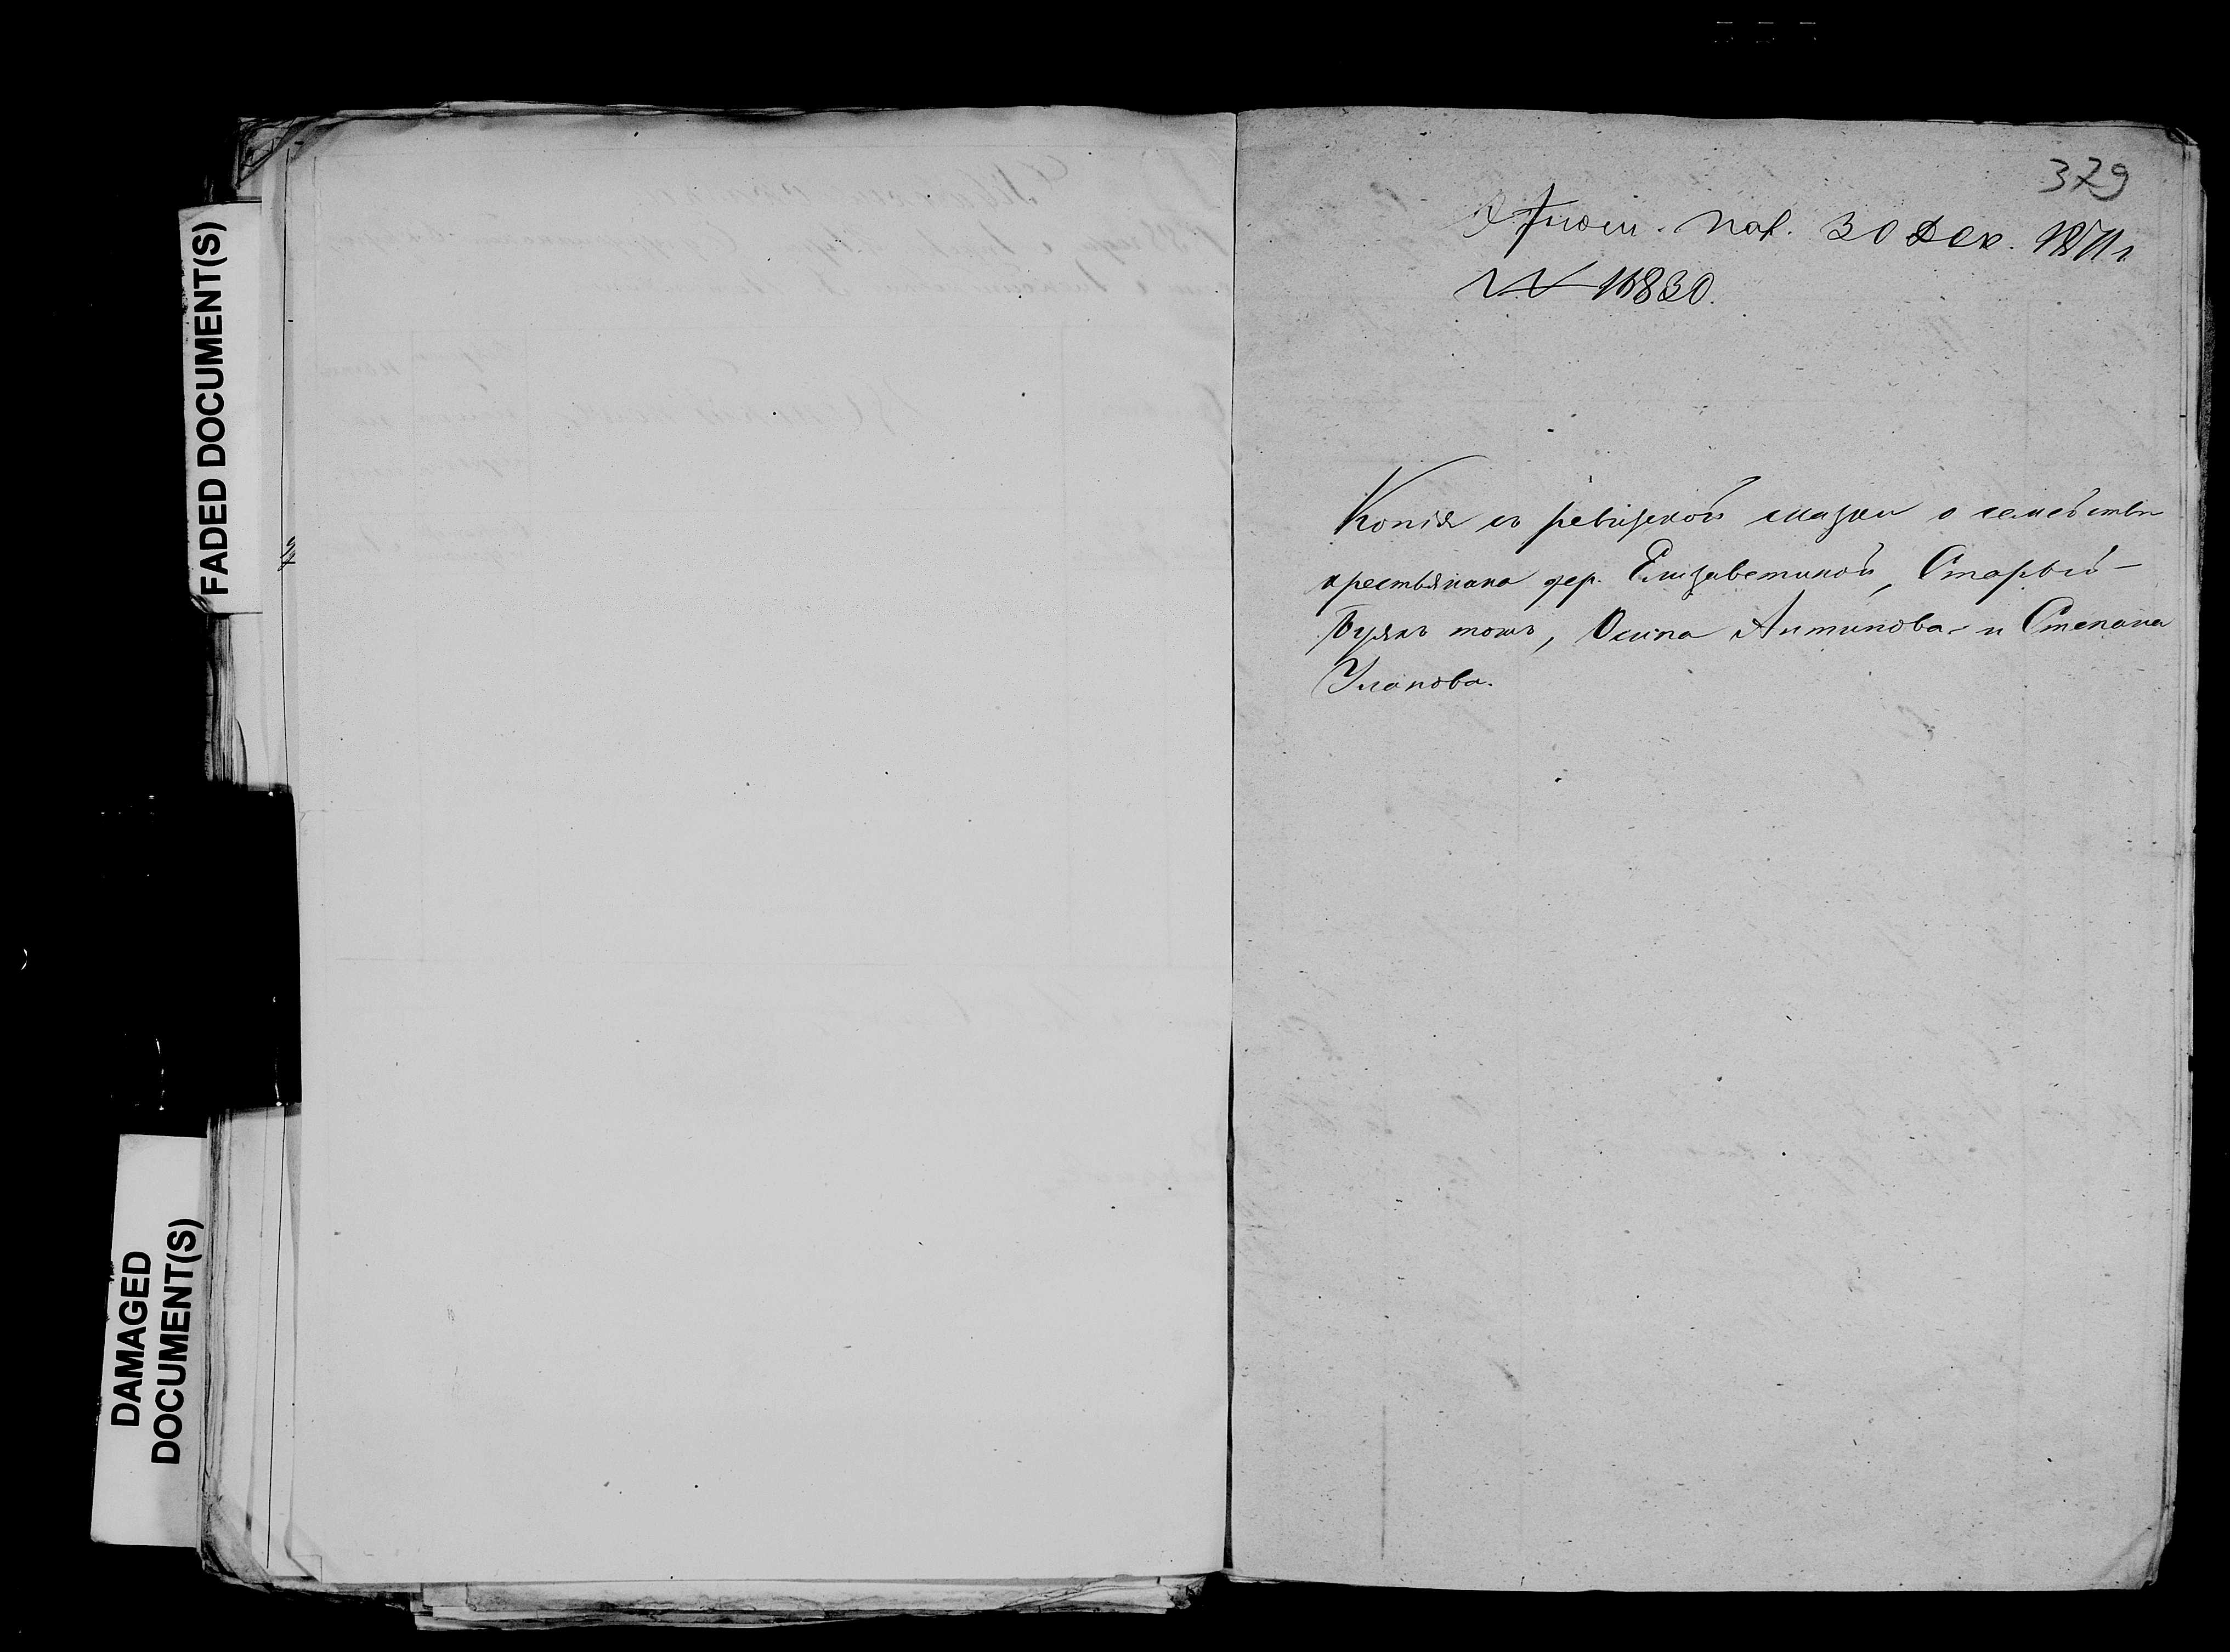 FADED DOCUMENT(S)
DAMAGED
DOCUMENT(S)
379
30 Дек. 1871 г
№ 16830.
Копія съ ревизской сказки о семействѣ
крестьянина дер. Елизаветиной, Старый-
Буякъ тожъ, Осипа Антипова и Степана